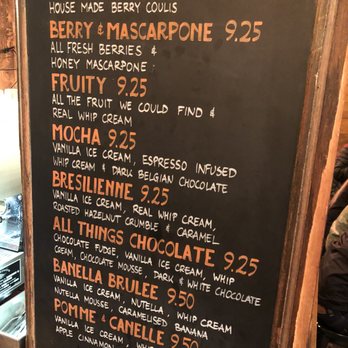 HOUSE MADE BERRY COULIS
BERRY & MASCARPONE 9.25
ALL FRESH BERRIES &
HONEY MASCARPONE.
FRUITY 9.25
ALL THE FRUIT WE COULD FIND &
REAL WHIP CREAM
MOCHA 9.25
VANILLA ICE CREAM, ESPRESSO INFUSED
WHIP CREAM & DARK BELGIAN CHOCOLATE
BRESILIENNE 9.25
VANILLA ICE CREAM, REAL WHIP CREAM,
ROASTED HAZELNUT CRUMBLE & CARAMEL
ALL THINGS CHOCOLATE 9.25
CHOCOLATE FUDGE, VANILLA ICE CREAM, WHIP
CREAM, CHOCOLATE MOUSSE, DARK & WHITE CHOCOLATE
BANELLA BRULEE 9.50
VANILLA ICE CREAM, NUTELLA, WHIP CREAM
NUTELLA MOUSSE, CARAMELISED BANANA
POMME & CANELLE 9.50
VANILLA ICE CREAM,
APPLE CINNAMON